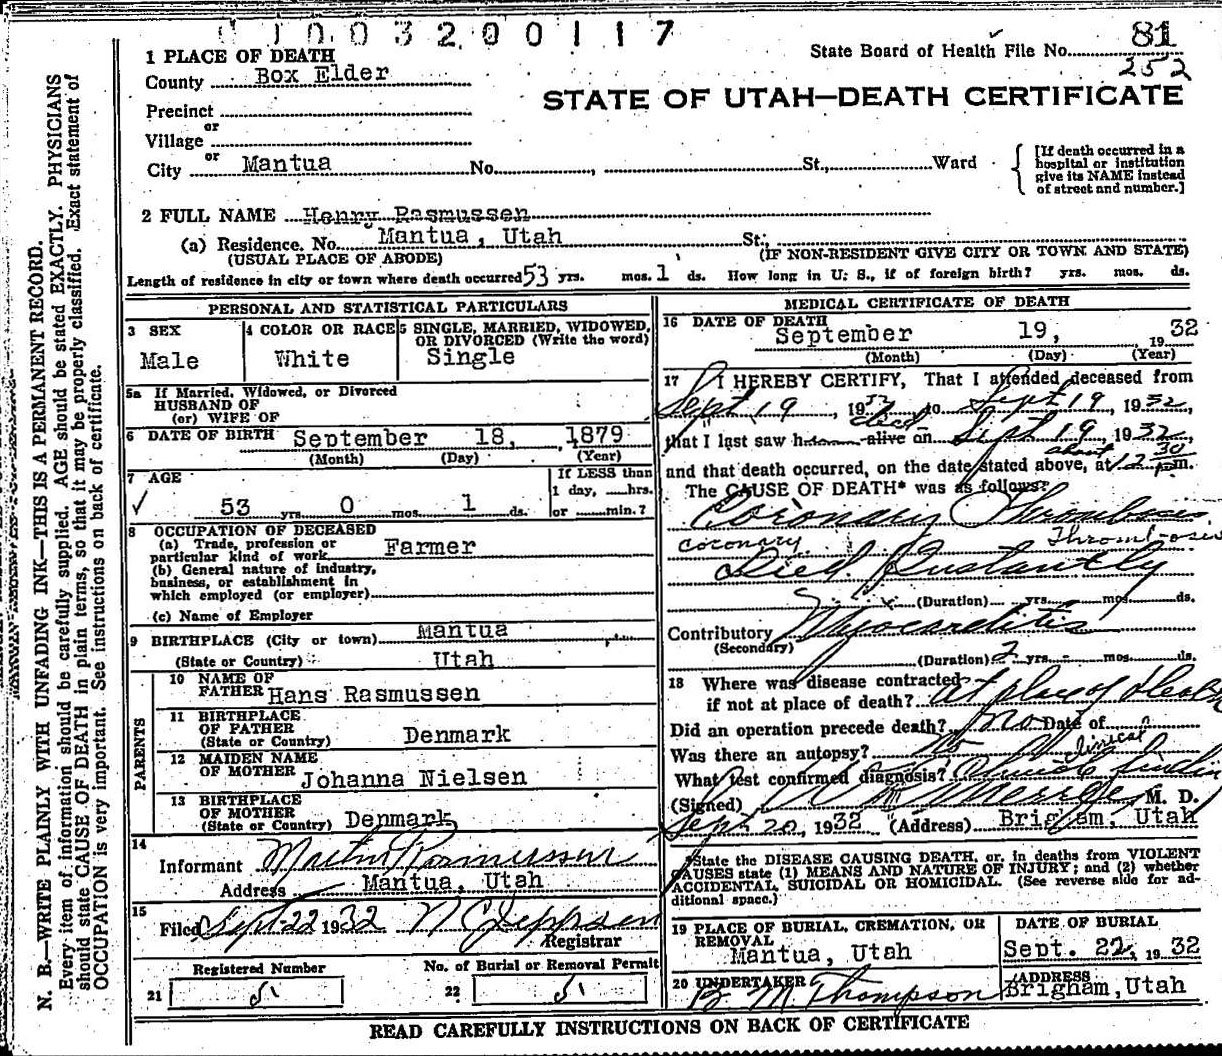 0 1 0 0 3 2 0 0 1 1 7
State Board of Health File No. 81
252
STATE OF UTAH—DEATH CERTIFICATE
1 PLACE OF DEATH
County Box Elder
Precinct
or
Village
or
City Mantua No. , St., Ward
[If death occurred in a
hospital or institution
give its NAME instead
of street and number.]
2 FULL NAME Henry Rasmussen
(a) Residence. No. Mantua, Utah St.;
(USUAL PLACE OF ABODE) (IF NON-RESIDENT GIVE CITY OR TOWN AND STATE)
Length of residence in city or town where death occurred 53 yrs. mos. 1 ds. How long in U. S., if of foreign birth? yrs. mos. ds.
PERSONAL AND STATISTICAL PARTICULARS
3 SEX
Male
4 COLOR OR RACE
White
5 SINGLE, MARRIED, WIDOWED,
OR DIVORCED (Write the word)
Single
5a If Married, Widowed, or Divorced
HUSBAND OF
(or) WIFE OF
6 DATE OF BIRTH September 18, 1879
(Month) (Day) (Year)
7 AGE
53 yrs. 0 mos. 1 ds.
If LESS than
1 day, ......hrs.
or ......min.?
8 OCCUPATION OF DECEASED
(a) Trade, profession or
particular kind of work Farmer
(b) General nature of industry,
business, or establishment in
which employed (or employer)
(c) Name of Employer
9 BIRTHPLACE (City or town) Mantua
(State or Country) Utah
PARENTS
10 NAME OF
FATHER Hans Rasmussen
11 BIRTHPLACE
OF FATHER
(State or Country) Denmark
12 MAIDEN NAME
OF MOTHER Johanna Nielsen
13 BIRTHPLACE
OF MOTHER
(State or Country) Denmark
14
Informant Martin Rasmussen
Address Mantua, Utah
15
Filed Sept 22 1932 N C Jeppsen
Registrar
Registered Number
21 5
No. of Burial or Removal Permit
22 5
MEDICAL CERTIFICATE OF DEATH
16 DATE OF DEATH
September 19, 1932
(Month) (Day) (Year)
17 I HEREBY CERTIFY, That I attended deceased from
Sept 19, 1932 to Sept 19, 1932,
dead
that I last saw h alive on Sept 19, 1932,
about
and that death occurred, on the date stated above, at 12 30 p.m.
The CAUSE OF DEATH* was as follows:
Coronary Thrombosis
coronary Thrombosis
Died Instantly
(Duration) yrs. mos. ds.
Contributory Myocarditis
(Secondary)
(Duration) 2 yrs. - mos. ds.
18 Where was disease contracted
if not at place of death? at place of death
Did an operation precede death? no Date of
Was there an autopsy? no
clinical
What test confirmed diagnosis?
(Signed) M. D.
Sept 20, 1932 (Address) Brigham, Utah
*State the DISEASE CAUSING DEATH, or, in deaths from VIOLENT
CAUSES state (1) MEANS AND NATURE OF INJURY; and (2) whether
ACCIDENTAL, SUICIDAL OR HOMICIDAL. (See reverse side for ad-
ditional space.)
19 PLACE OF BURIAL, CREMATION, OR
REMOVAL
Mantua, Utah
DATE OF BURIAL
Sept. 22, 1932
20 UNDERTAKER
B. M. Thompson
ADDRESS
Brigham, Utah
READ CAREFULLY INSTRUCTIONS ON BACK OF CERTIFICATE
N. B.—WRITE PLAINLY WITH UNFADING INK—THIS IS A PERMANENT RECORD.
Every item of information should be carefully supplied. AGE should be stated EXACTLY. PHYSICIANS
should state CAUSE OF DEATH in plain terms, so that it may be properly classified. Exact statement of
OCCUPATION is very important. See instructions on back of certificate.